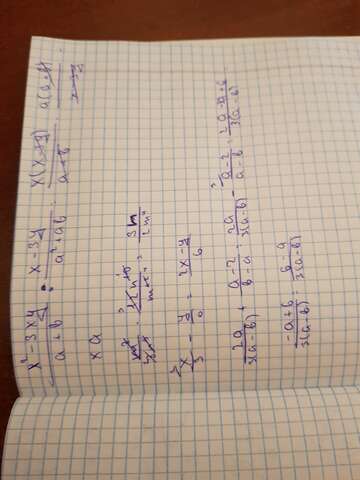 x²-3xy/a+b : x-3y/a²+ab = x(x-3y)/a+b · a(a+b)/x-3y =
xa
= 3n/2m⁴
x/3 - y/6 = 2x-y/6
2a/3(a-b) + a-2/b-a = 2a/3(a-b) - a-2/a-b = 2a-3a+6/3(a-b)
-a+6/3(a-b) = 6-a/3(a-b)